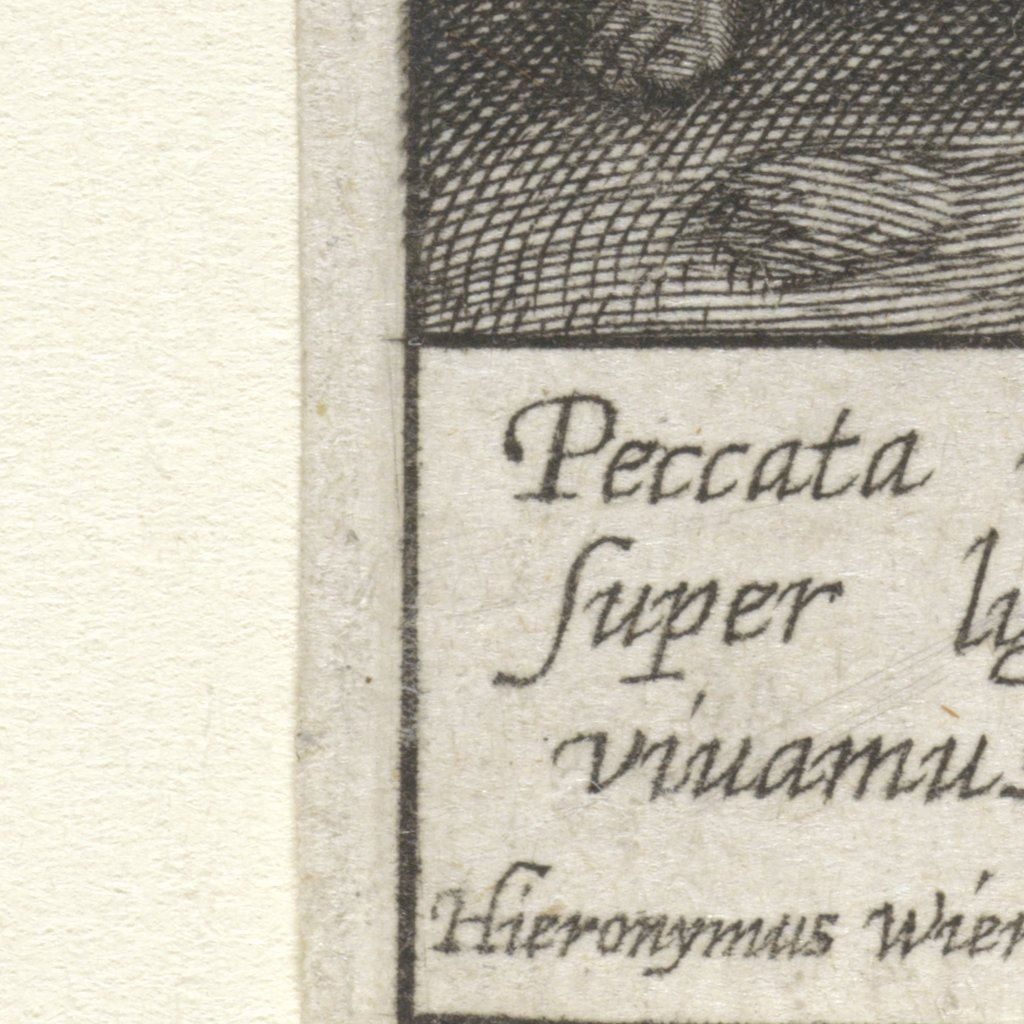 Peccata
ſuper
viuamus
Hieronymus